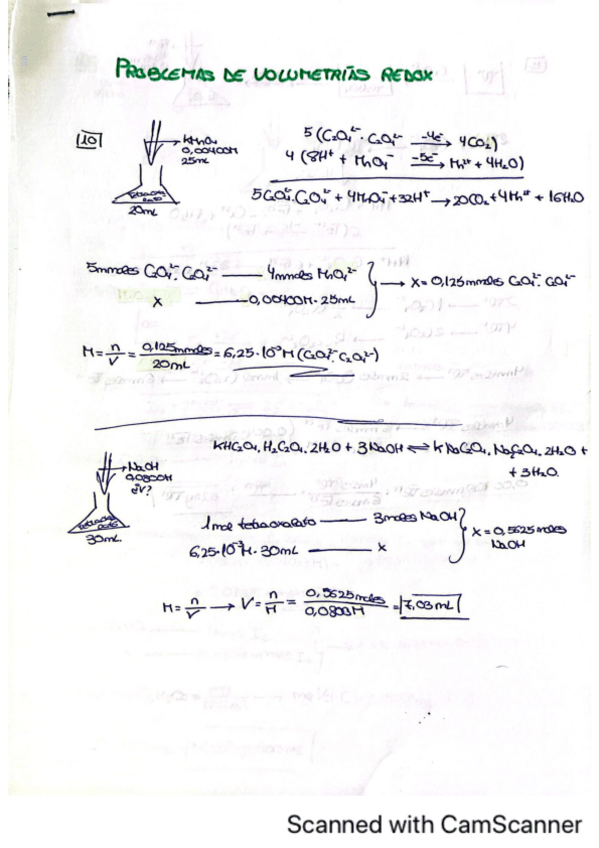 PROBLEMAS DE VOLUMETRÍAS REDOX
10
KMnO₄
0,00400M
25mL
20mL
5 (C₂O₄²⁻·C₂O₄²⁻ -4e⁻→ 4CO₂)
4 (8H⁺ + MnO₄⁻ -5e⁻→ Mn²⁺ + 4H₂O)
5C₂O₄²⁻·C₂O₄²⁻ + 4MnO₄⁻ + 32H⁺ → 20CO₂ + 4Mn²⁺ + 16H₂O
5mmoles C₂O₄²⁻·C₂O₄²⁻ — 4mmoles MnO₄²⁻
x — 0,00400M·25mL
→ x = 0,125mmoles C₂O₄²⁻·C₂O₄²⁻
M = n/V = 0,125mmoles/20mL = 6,25·10⁻³M (C₂O₄²⁻·C₂O₄²⁻)
KHC₂O₄·H₂C₂O₄·2H₂O + 3NaOH ⇌ KNaC₂O₄·Na₂C₂O₄·2H₂O +
+ 3H₂O
NaOH
0,0800M
¿V?
30mL
1mol tetraoxalato — 3moles NaOH
6,25·10⁻³M·30mL — x
x = 0,5625moles
NaOH
M = n/V → V = n/M = 0,5625moles/0,0800M = 7,03mL
Scanned with CamScanner